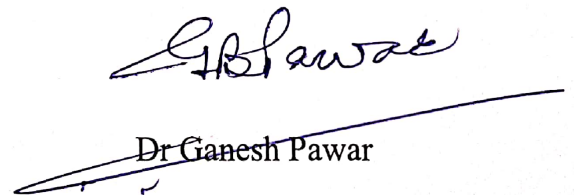 GBPawar
Dr Ganesh Pawar